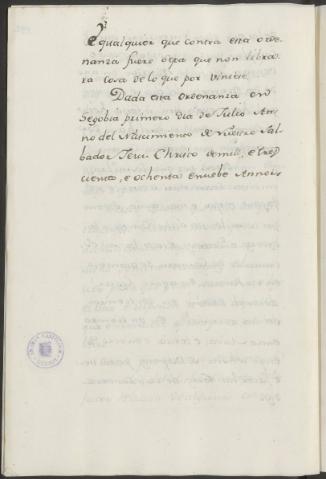 Y
Equalquier que contra esta orde-
nanza fuere o tpa que non libra-
ra cosa de lo que por viniere
Dada esta ordenanza en
Segobia primero dia de Julio An-
no del Nascimiento de nuestro Sal-
bador Jesu Christo de mill, e tres-
cientos, e ochenta e nuebe Annos